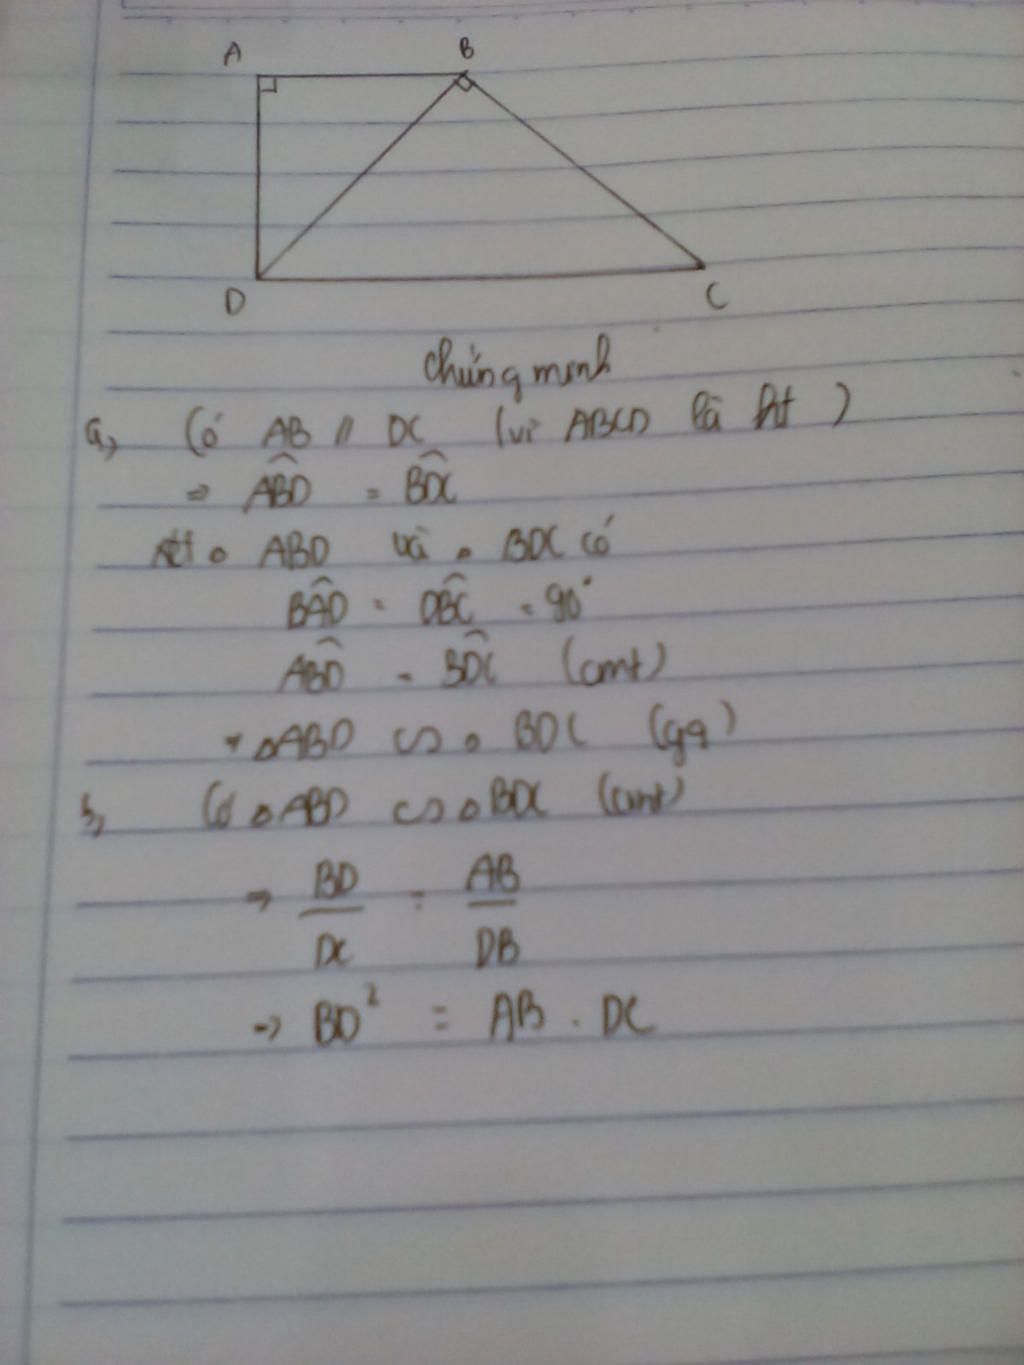 A B
D C
Chứng minh
a, Có AB // DC (vì ABCD là ht)
⇒ ABD̂ = BDĈ
Xét △ ABD và △ BDC có
BAD̂ = DBĈ = 90°
ABD̂ = BDĈ (cmt)
⇒ △ABD ∽ △ BDC (gg)
b, Có △ABD ∽ △BDC (cmt)
⇒ BD/DC = AB/DB
⇒ BD² = AB . DC